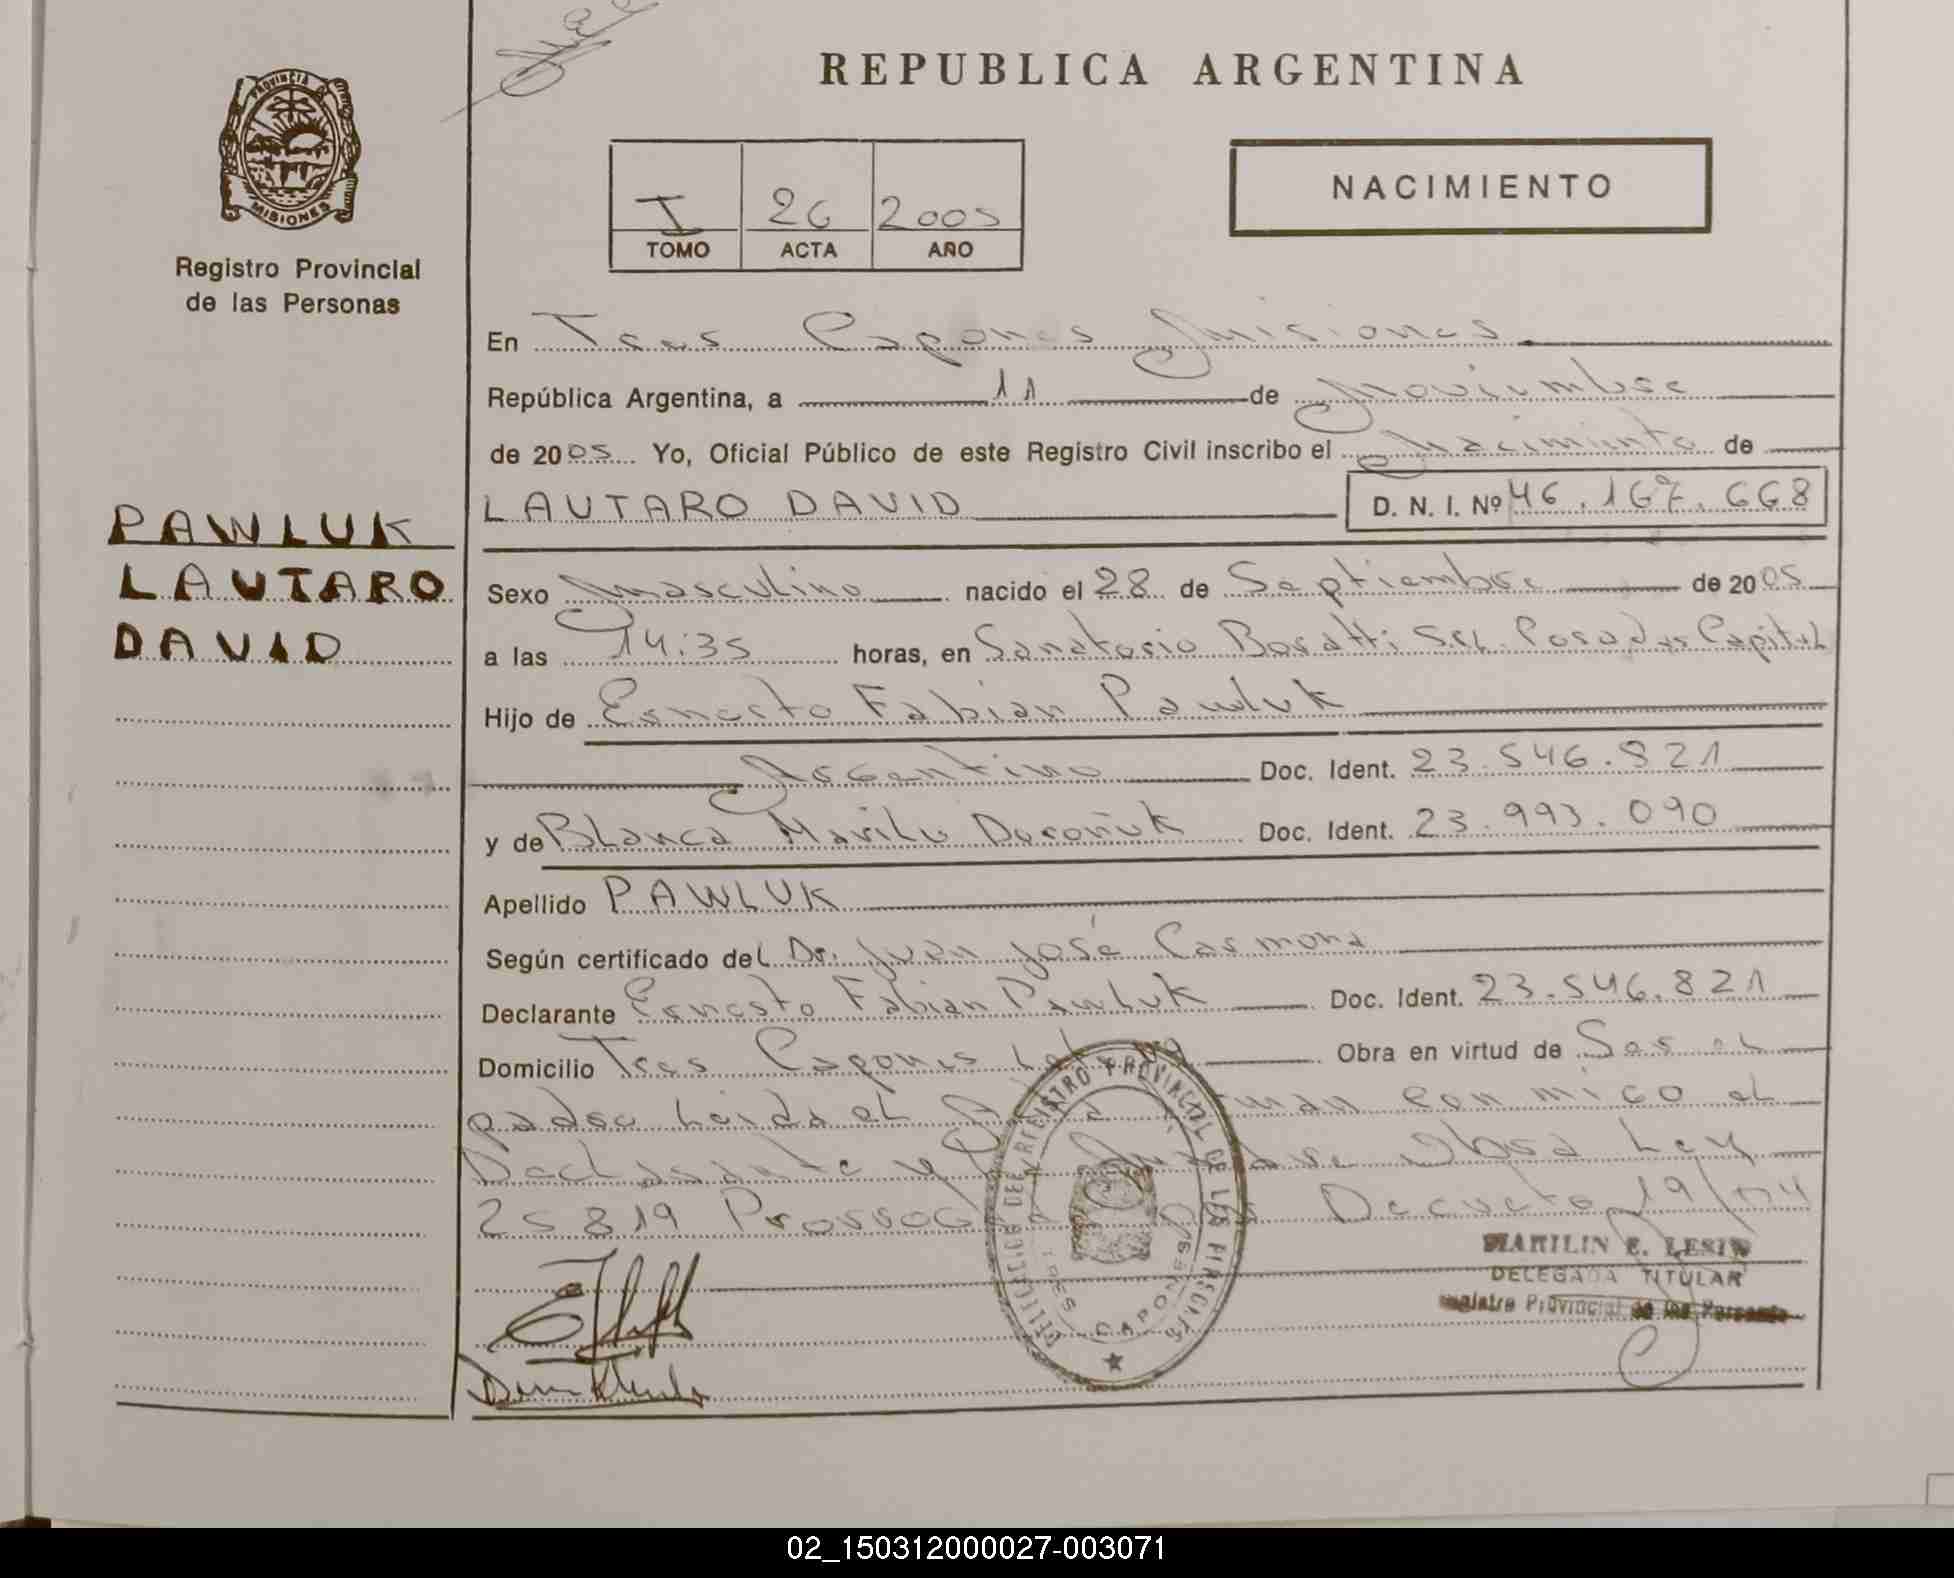 REPUBLICA ARGENTINA
PROVINCIA DE
MISIONES
Registro Provincial
de las Personas
I 26 2005
TOMO ACTA AÑO
NACIMIENTO
En Tres Capones Misiones
República Argentina, a 11 de Noviembre
de 2005 Yo, Oficial Público de este Registro Civil inscribo el Nacimiento de
LAUTARO DAVID D. N. I. Nº 46.167.668
PAWLUK
LAUTARO
DAVID
Sexo Masculino nacido el 28 de Septiembre de 2005
a las 14:35 horas, en Sanatorio Boratti SRL. Posadas Capital
Hijo de Ernesto Fabian Pawluk
Argentino Doc. Ident. 23.546.821
y de Blanca Marilu Doc. Ident. 23.993.090
Apellido PAWLUK
Según certificado del Dr. Juan José Carmona
Declarante Ernesto Fabian Pawluk Doc. Ident. 23.546.821
Domicilio Tres Capones Obra en virtud de Ser el
padre Leida el firman conmigo el
Declarante y Obra Ley
25819 Decreto 19/04
REGISTRO PROVINCIAL DE LAS PERSONAS
TRES CAPONES
MARILIN E. LESIW
DELEGADA TITULAR
Registro Provincial de las Personas
02_150312000027-003071